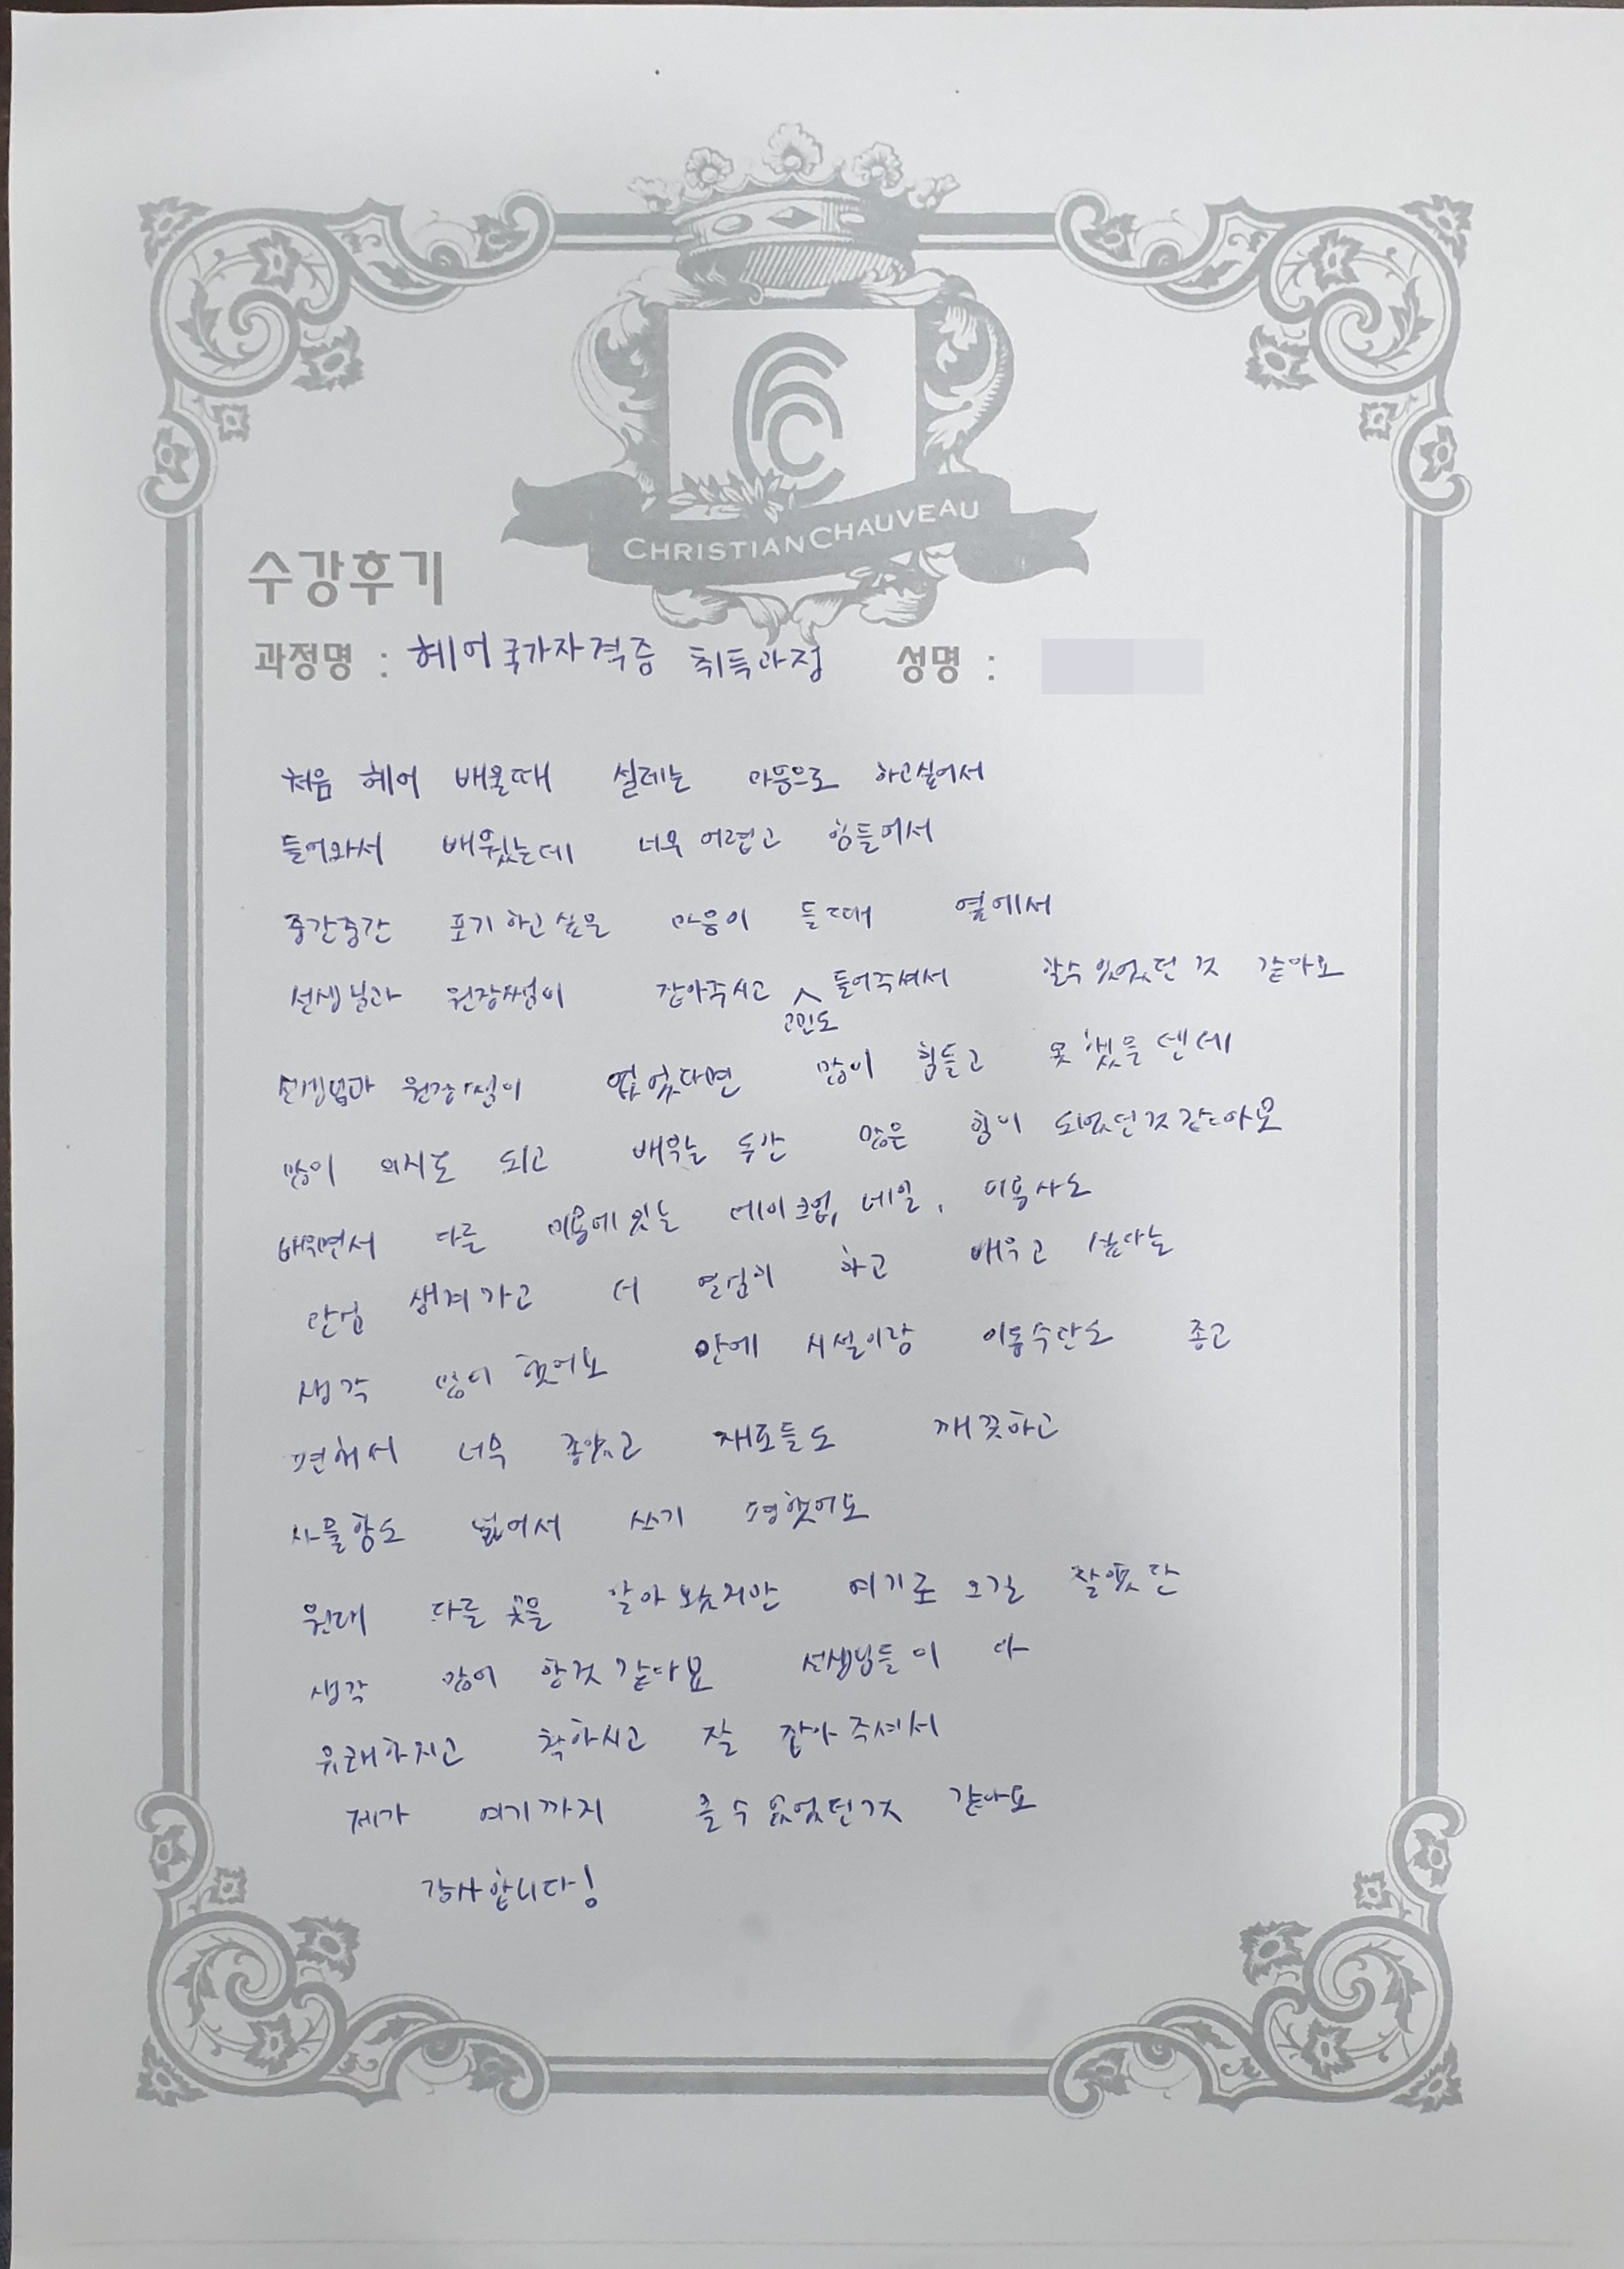 CHRISTIAN CHAUVEAU
수강후기
과정명 : 헤어국가자격증 취득과정 성명 :
처음 헤어 배울때 설레는 마음으로 하고싶어서
들어와서 배웠는데 너무 어렵고 힘들어서
중간중간 포기하고싶은 마음이 들때 옆에서
선생님과 원장쌤이 잡아주시고 고민도 들어주셔서 할수있었던것 같아요
선생님과 원장쌤이 없었다면 많이 힘들고 못했을텐데
많이 의지도 되고 배우는 동안 많은 힘이 되었던것같아요
배우면서 다른 미용에있는 메이크업, 네일, 피부사도
생겨가고 더 열심히 하고 배우고 싶다는
생각 많이 했어요 안에 시설이랑 이동수단도 좋고
편해서 너무 좋았고 재료들도 깨끗하고
사물함도 넓어서 쓰기 편했어요
원래 다른 곳을 알아보았지만 여기로 오길 잘했단
생각 많이 한것같아요 선생님들이 다
유쾌하시고 착하시고 잘 잡아주셔서
제가 여기까지 올수있었던것 같아요
감사합니다!